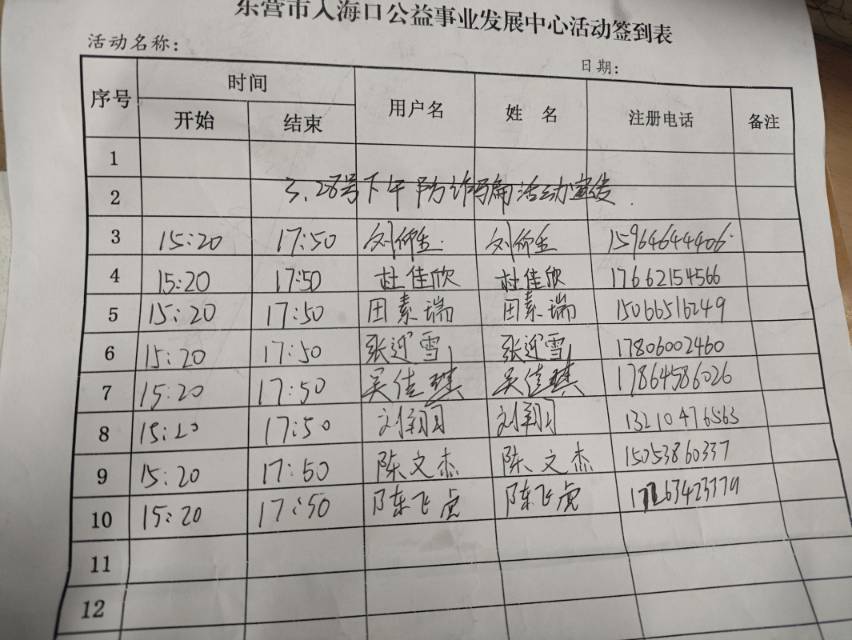 东营市入海口公益事业发展中心活动签到表
活动名称: 日期:
序号 时间 用户名 姓 名 注册电话 备注
开始 结束
1
2 3.28号下午防诈骗活动宣传.
3 15:20 17:50 刘 刘 15964644406
4 15:20 17:50 杜佳欣 杜佳欣 17662154566
5 15:20 17:50 田素瑞 田素瑞 15066516249
6 15:20 17:50 张迎雪 张迎雪 17806002460
7 15:20 17:50 吴佳琪 吴佳琪 17864586026
8 15:20 17:50 刘翔羽 刘翔羽 13210476563
9 15:20 17:50 陈文杰 陈文杰 15053860337
10 15:20 17:50 陈飞虎 陈飞虎
11
12